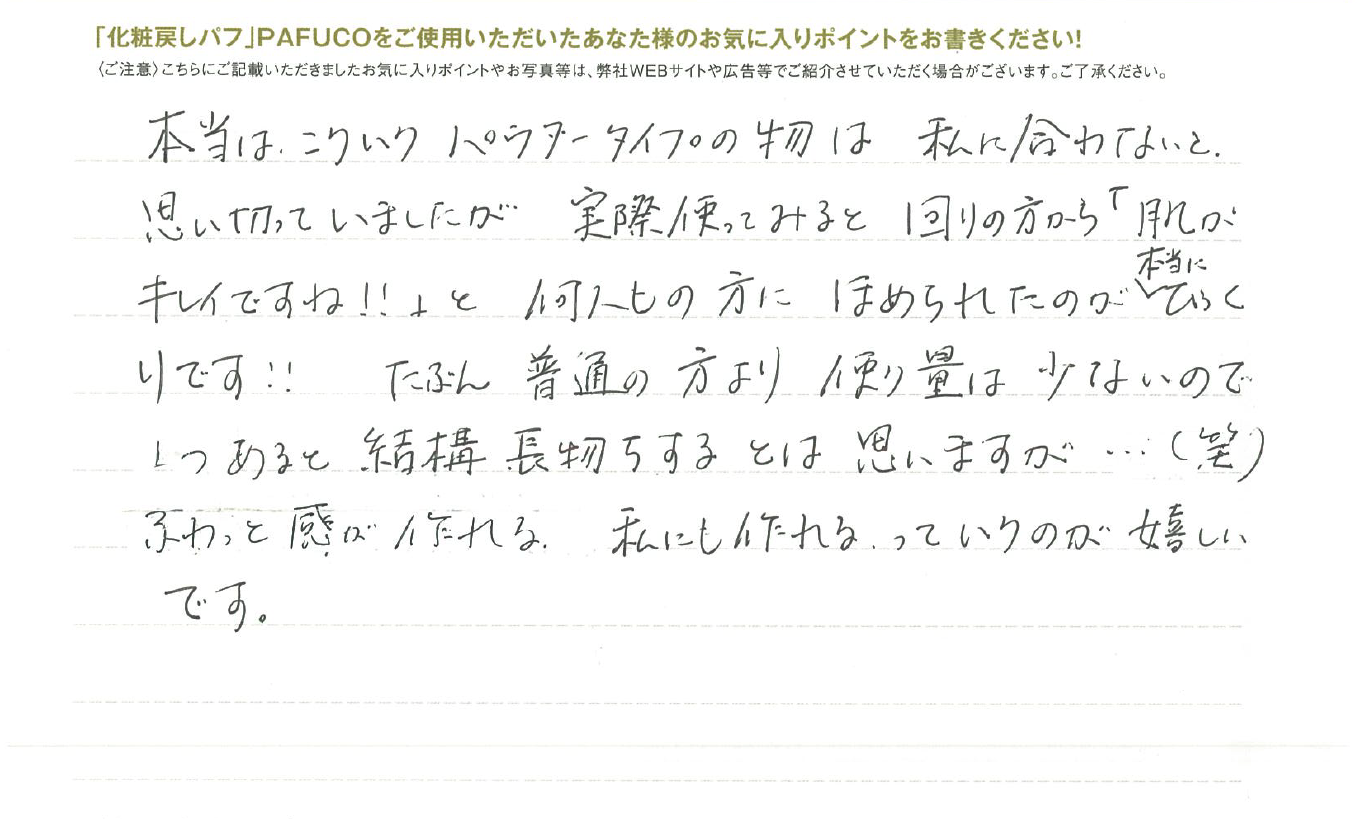 「化粧戻しパフ」PAFUCOをご使用いただいたあなた様のお気に入りポイントをお書きください!
〈ご注意〉こちらにご記載いただきましたお気に入りポイントやお写真等は、弊社WEBサイトや広告等でご紹介させていただく場合がございます。ご了承ください。
本当は、こういう パウダータイプの物は 私に合わないと、
思い切っていましたが 実際使ってみると 1回りの方から「肌が
キレイですね!!」と 何人もの方に ほめられたのが本当にびっく
りです!! たぶん 普通の方より 使う量は 少ないので
1つあると 結構 長物ちするとは 思いますが…(笑)
ふわっと感が作れる、 私にも作れる、っていうのが 嬉しい
です。